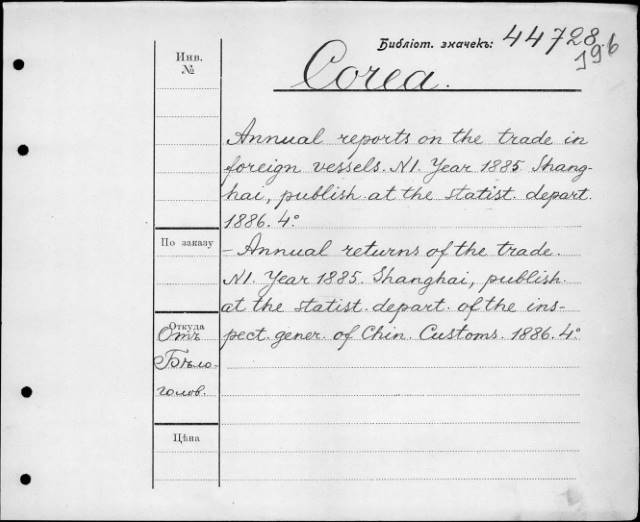 Библіот. значекъ: 44728
196
Corea.
Инв.
№
Annual reports on the trade in
foreign vessels. N1. Year 1885. Shang-
hai, publish. at the statist. depart.
1886. 4°.
По заказу
— Annual returns of the trade.
N1. Year 1885. Shanghai, publish.
at the statist. depart. of the ins-
pect. gener. of Chin. Customs. 1886. 4°.
Откуда
Отъ
Бѣло-
голов.
Цѣна